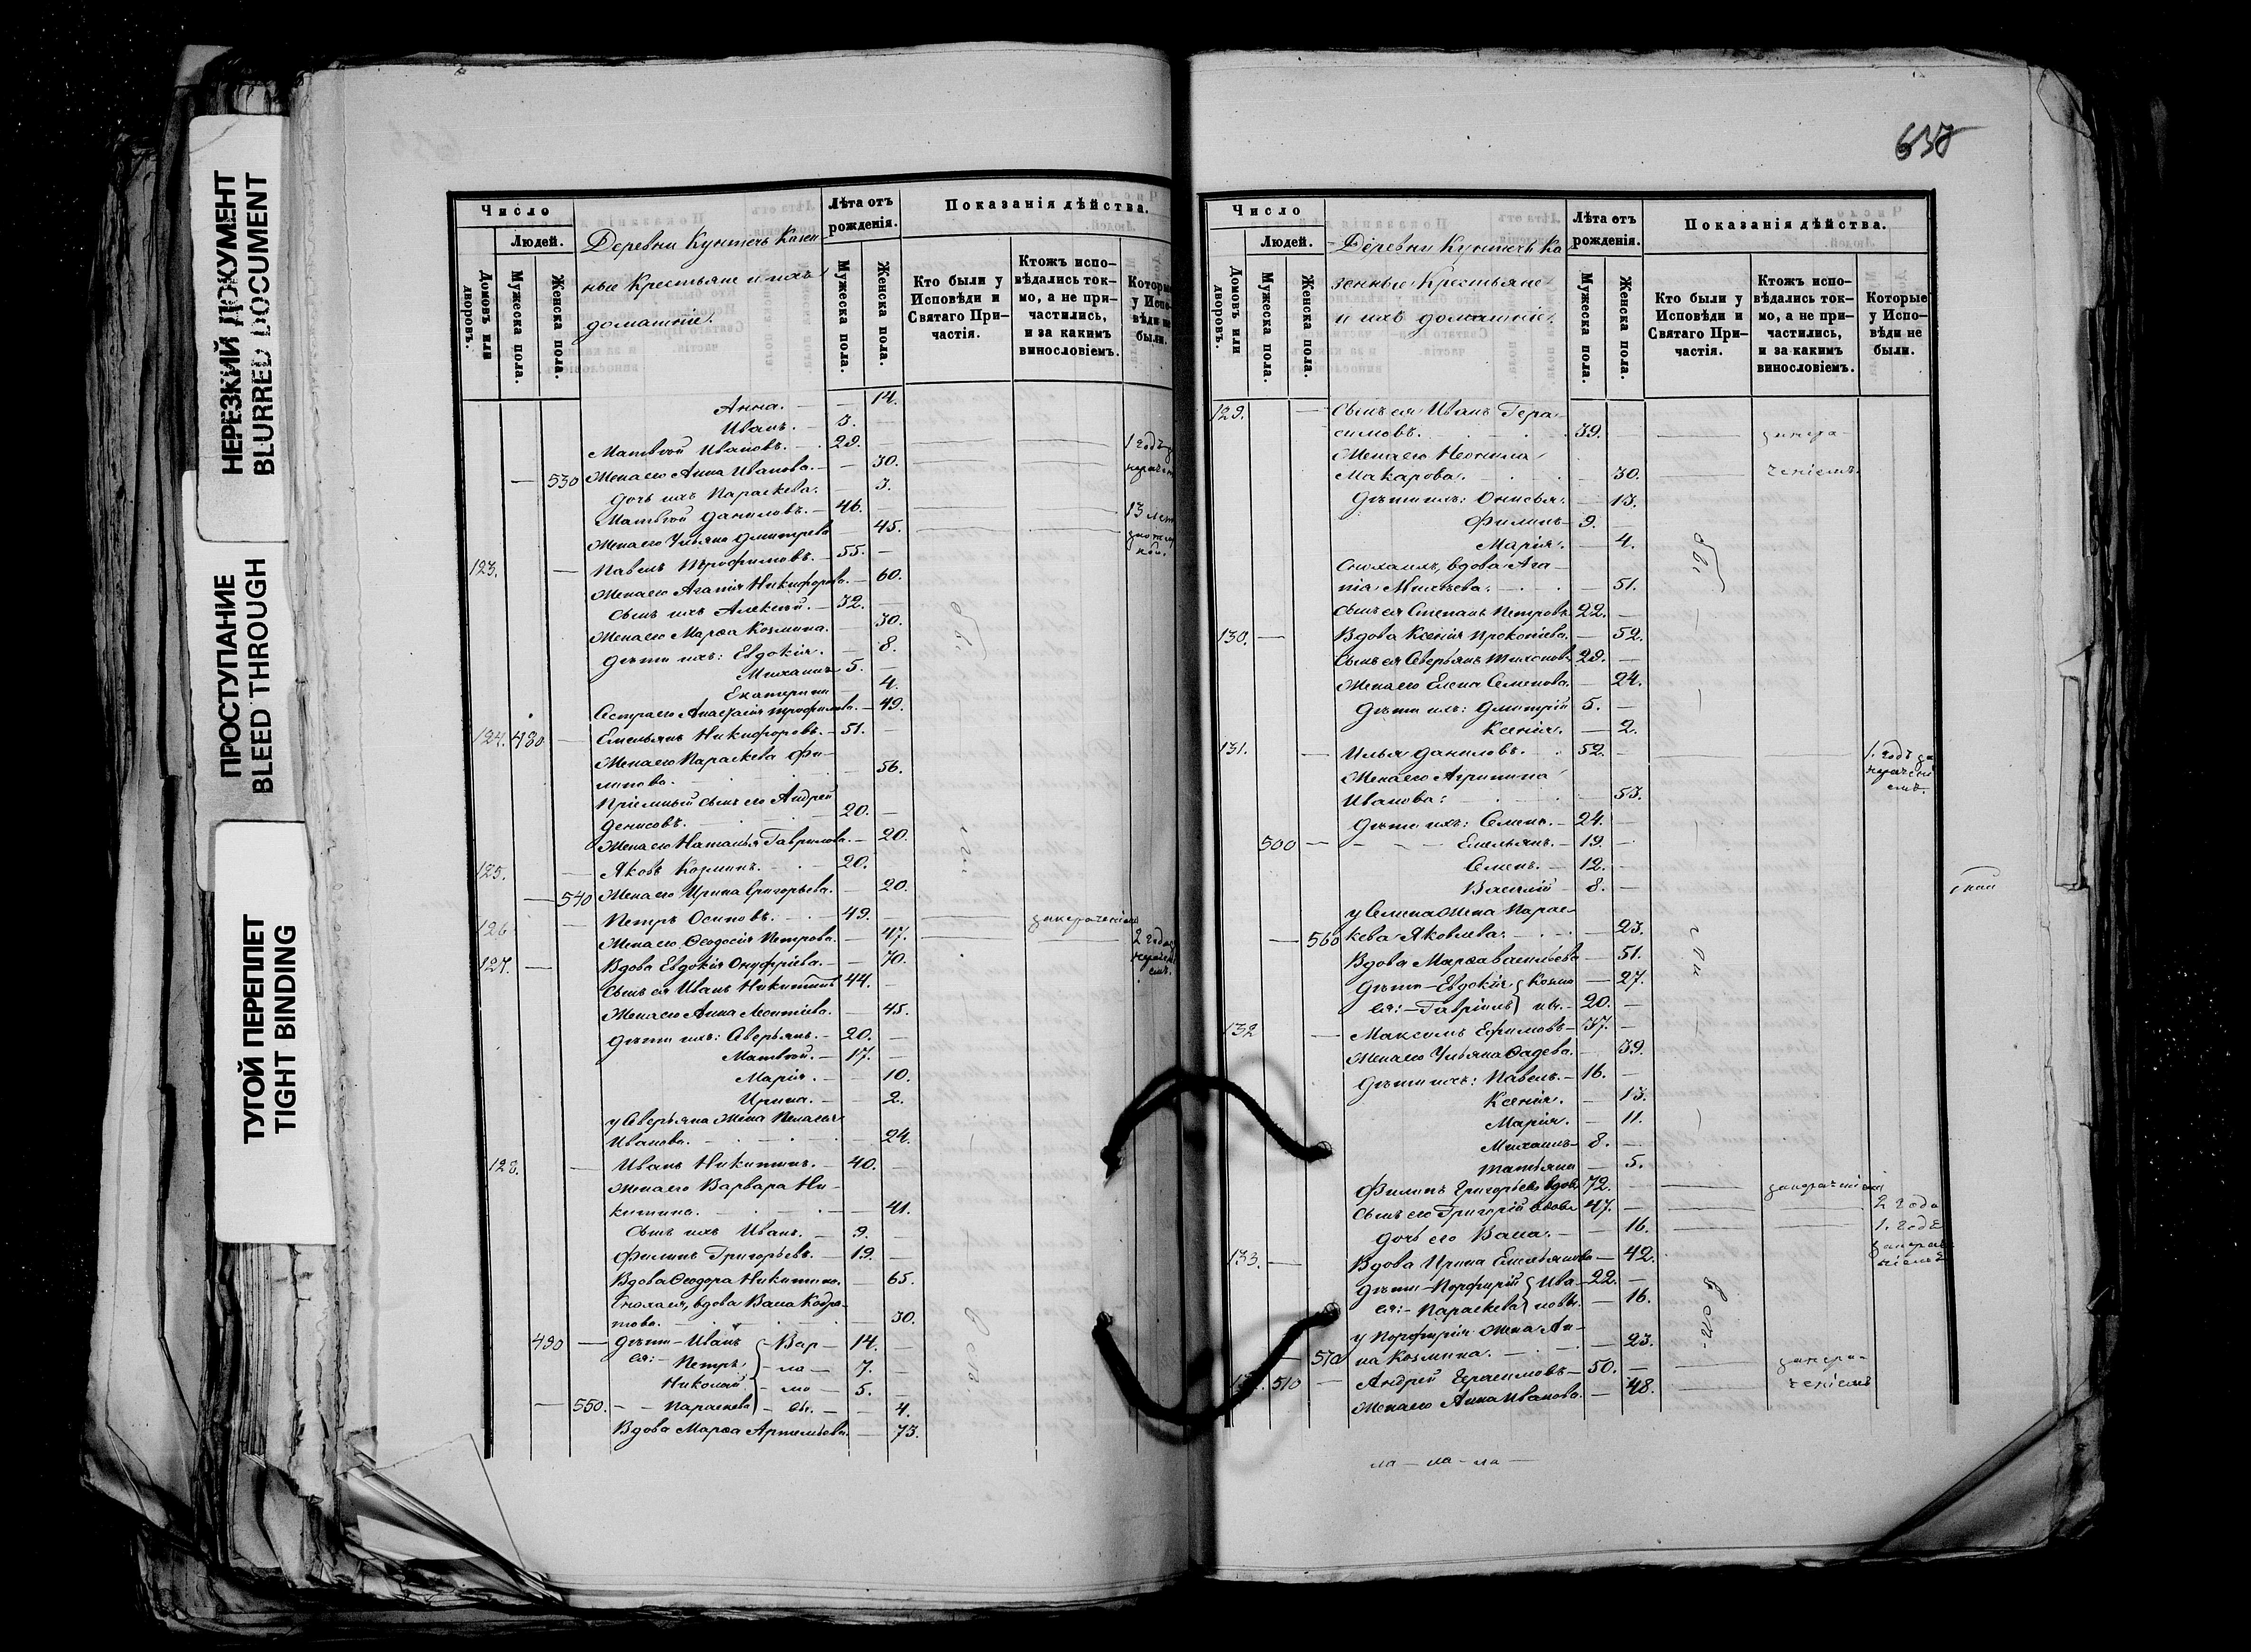 НЕРЕЗКИЙ ДОКУМЕНТ
BLURRED DOCUMENT
ПРОСТУПАНИЕ
BLEED THROUGH
ТУГОЙ ПЕРЕПЛЕТ
TIGHT BINDING
Число
Людей.
Домовъ или дворовъ.
Мужеска пола.
Женска пола.
Деревни Кунтечь Казен-
ные Крестьяне и ихъ
домашніе.
Лѣта отъ рожденія.
Мужеска пола.
Женска пола.
Показанія дѣйства.
Кто были у Исповѣди и Святаго При-частія.
Ктожъ испо-вѣдались ток-мо, а не при-частились, и за какимъ винословіемъ.
Которые у Испо-вѣди не были.
Анна. — 14.
Иванъ. — 3.
Матвѣй Ивановъ. — 29. 1 годъ
Жена его Анна Иванова. — 30.
530 дочь ихъ Параскева. — 3.
Матвѣй Даниловъ. — 46. 13 лет
Жена его Ульяна Дмитрева 45.
123. — Павелъ Трофимовъ. — 55. —
Жена его Агапія Никифорова. — 60.
Сынъ ихъ Алексѣй. — 32. —
Жена его Марѳа Козмина. 30.
Дѣти ихъ: Евдокія. — 8.
Михаилъ 5. —
Екатерина — 4.
Сестра его Анастасія Трофимова. — 49.
124. 480 — Емельянъ Никифоровъ. — 51. —
Жена его Параскева Фи-
липова. — 56.
Пріемный сынъ его Андрей
Денисовъ. 20. —
Жена его Наталья Гаврилова. — 20.
125. — Яковъ Козминъ. — 20.
540 Жена его Ирина Григорьева. — 20.
126 — Петръ Осиповъ. — 49. — занераченіемъ
Жена его Ѳеодосія Петрова. — 47. 2 года
127. — Вдова Евдокія Онуфріева. — 70.
Сынъ ея Иванъ Никитинъ 44. —
Жена его Анна Леонтіева. — 45.
Дѣти ихъ: Аверьянъ. — 20. —
Матвѣй. — 17. —
Марія. — 10.
Ирина. — 2.
у Аверьяна Жена Пелагея
Иванова. — 24.
128. — Иванъ Никитинъ. — 40. —
Жена его Варвара Ни-
китина. — 41.
Сынъ ихъ Иванъ. — 9. —
Филипъ Григорьевъ. — 19. —
Вдова Ѳеодора Никитина. — 65.
Сноха ея, вдова Васа Кодра-
това. — 30.
490 — Дѣти — Иванъ — Вар — 14. —
ея: — Петръ — ла — 7. —
Николай — мо — 5. —
— 550. — Параскева — вы. — 4.
Вдова Марѳа Артемьева — 73.
637
Число
Людей.
Домовъ или дворовъ.
Мужеска пола.
Женска пола.
Деревни Кунтечь Ка-
зенные Крестьяне
и ихъ домашніе.
Лѣта отъ рожденія.
Мужеска пола.
Женска пола.
Показанія дѣйства.
Кто были у Исповѣди и Святаго При-частія.
Ктожъ испо-вѣдались ток-мо, а не при-частились, и за какимъ винословіемъ.
Которые у Испо-вѣди не были.
129. — Сынъ ея Иванъ Гера-
симовъ. 39. — занера-
Жена его Неонила
Макарова. — 30. — ченіемъ
Дѣти ихъ: Онисья. — 13.
Филипъ — 9. —
Марія. — 4.
Сноха ихъ, вдова Ага-
пія Михѣева. — 51.
Сынъ ея Степанъ Петровъ 22. —
130. — Вдова Ксенія Прокопіева. — 52.
Сынъ ея Северьянъ Тихоновъ 29. —
Жена его Елена Семенова. — 24.
Дѣти ихъ: Дмитрій 5. —
Ксенія. — 2.
131. — Илья Даниловъ. 52. — 1. годъ за
нераче
ніемъ.
Жена его Агрипина
Иванова: — 53.
Дѣти ихъ: Семенъ. — 24. —
500 — Емельянъ. — 19. —
Семенъ. — 12. —
Василій — 8. —
у Семена Жена Парас-
560 кева Яковлева. — 23.
Вдова Марѳа Васильева — 51.
Дѣти — Евдокія Козми — 27.
ея: — Гавріилъ ны. — 20. —
132 — Максимъ Ефимовъ — 37. —
Жена его Ульяна Ѳадева. — 39.
Дѣти ихъ: Павелъ. — 16. —
Ксенія. — 13.
Марія. — 11.
Михаилъ — 8. —
Татьяна — 5.
Филипъ Григорьевъ вдовъ 72. — занераченіемъ
Сынъ его Григорій вдовъ 47. — 2 года
дочь его Васа. — 16. 1. годъ
133. — Вдова Ирина Емельянова — 42.
Дѣти — Порфирій Ива — 22. —
ея: — Параскева новы. — 16.
у Порфирія Жена Ан-
570 на Козмина. — 23.
510 — Андрей Герасимовъ — 50. — занера-
Жена его Анна Иванова. — 48. ченіемъ
ла — ла — ла —